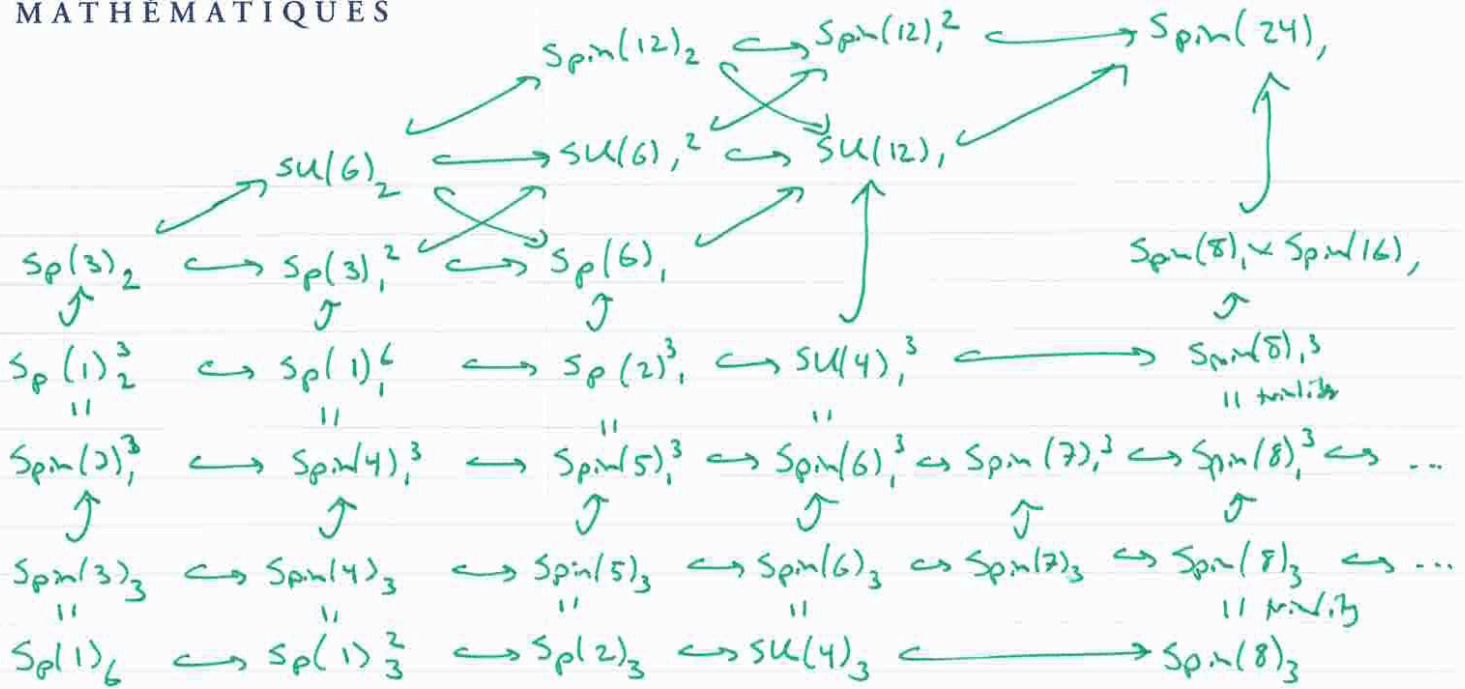 MATHÉMATIQUES
Spin(12)₂ ↪ Spin(12)₁² ↪ Spin(24)₁
SU(6)₂ ↪ SU(6)₁² ↪ SU(12)₁
Sp(3)₂ ↪ Sp(3)₁² ↪ Sp(6)₁ Spin(8)₁ × Spin(16)₁
Sp(1)₂³ ↪ Sp(1)₁⁶ ↪ Sp(2)₁³ ↪ SU(4)₁³ ↪ Spin(8)₁³
|| || || || || triality
Spin(3)₁³ ↪ Spin(4)₁³ ↪ Spin(5)₁³ ↪ Spin(6)₁³ ↪ Spin(7)₁³ ↪ Spin(8)₁³ ↪ ...
Spin(3)₃ ↪ Spin(4)₃ ↪ Spin(5)₃ ↪ Spin(6)₃ ↪ Spin(7)₃ ↪ Spin(8)₃ ↪ ...
|| || || || || triality
Sp(1)₆ ↪ Sp(1)₃² ↪ Sp(2)₃ ↪ SU(4)₃ ↪ Spin(8)₃